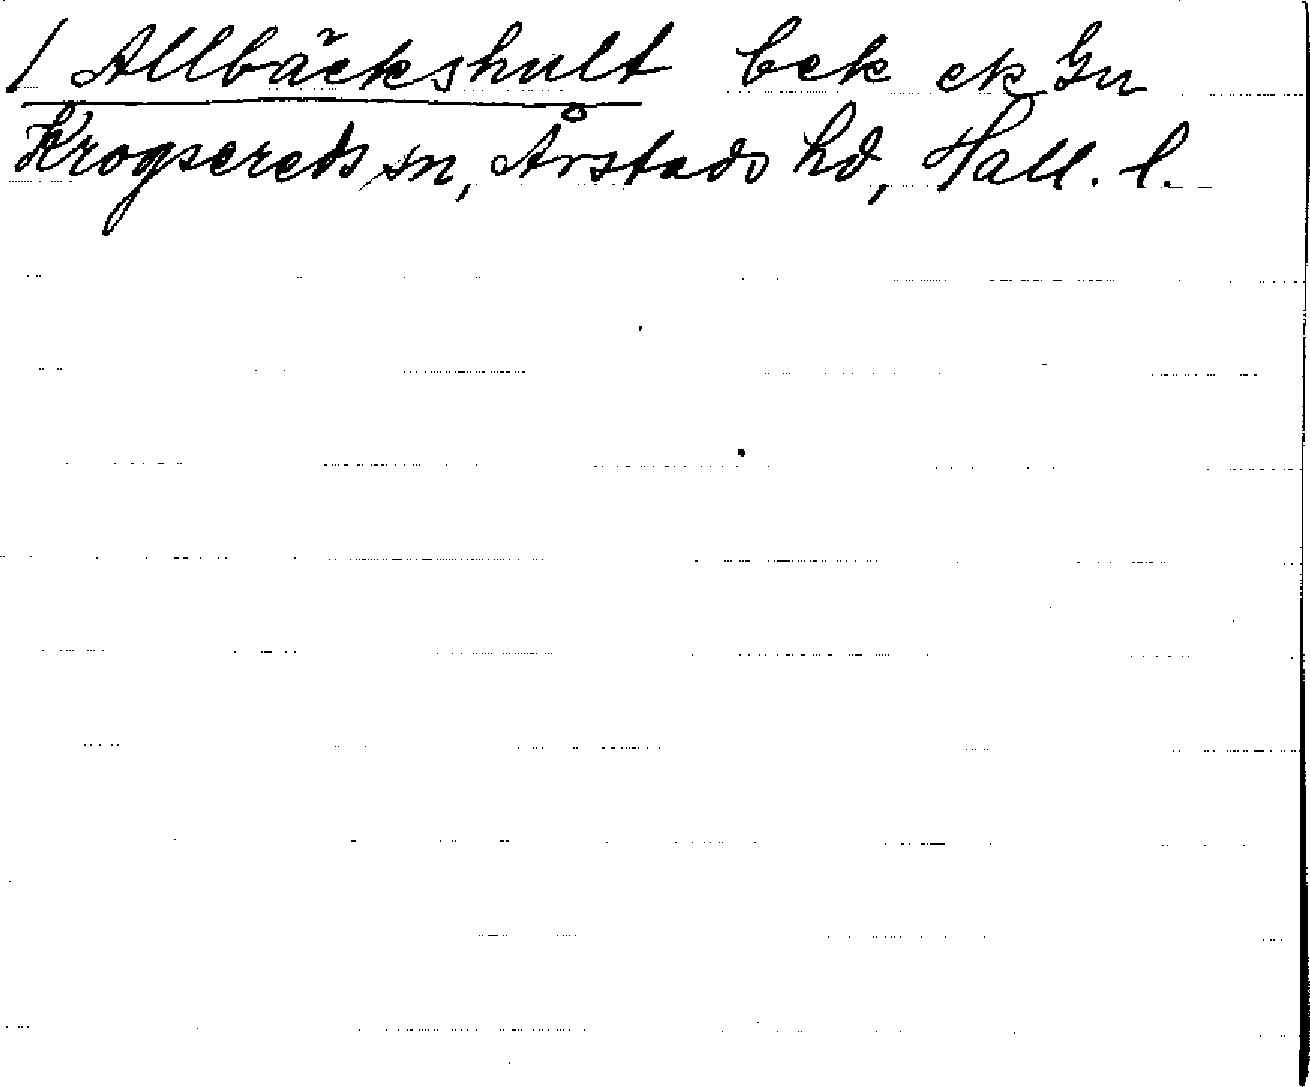 / Allbäckshult bek ek Gu
Krogsereds sn, Årstads hd, Hall. l.